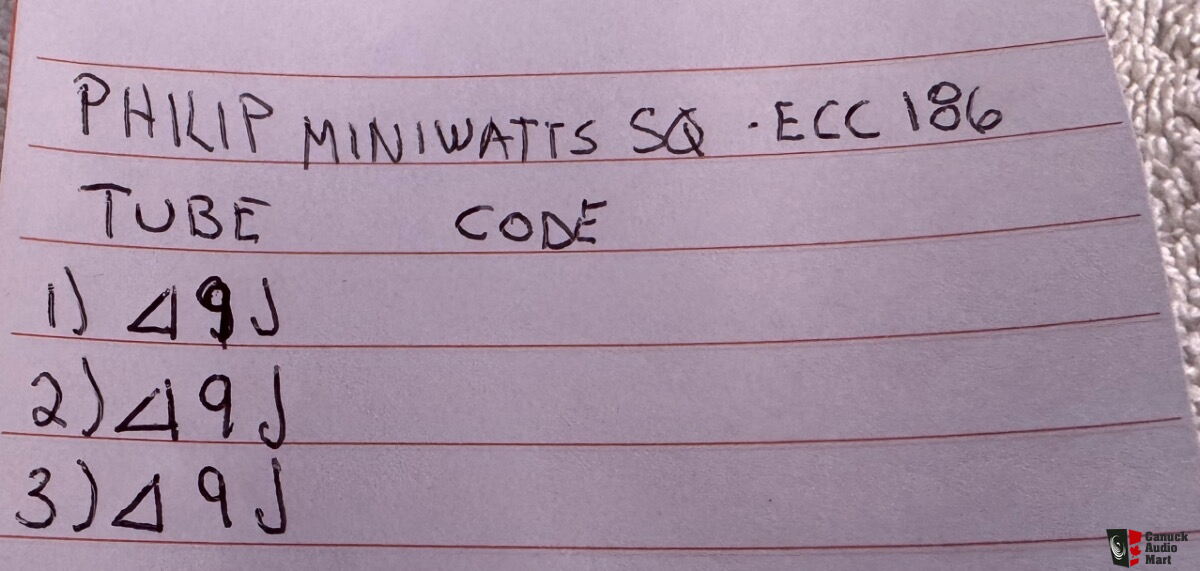 PHILIP MINIWATTS SQ · ECC 186
TUBE CODE
1) Δ9J
2) Δ9J
3) Δ9J
Canuck
Audio
Mart